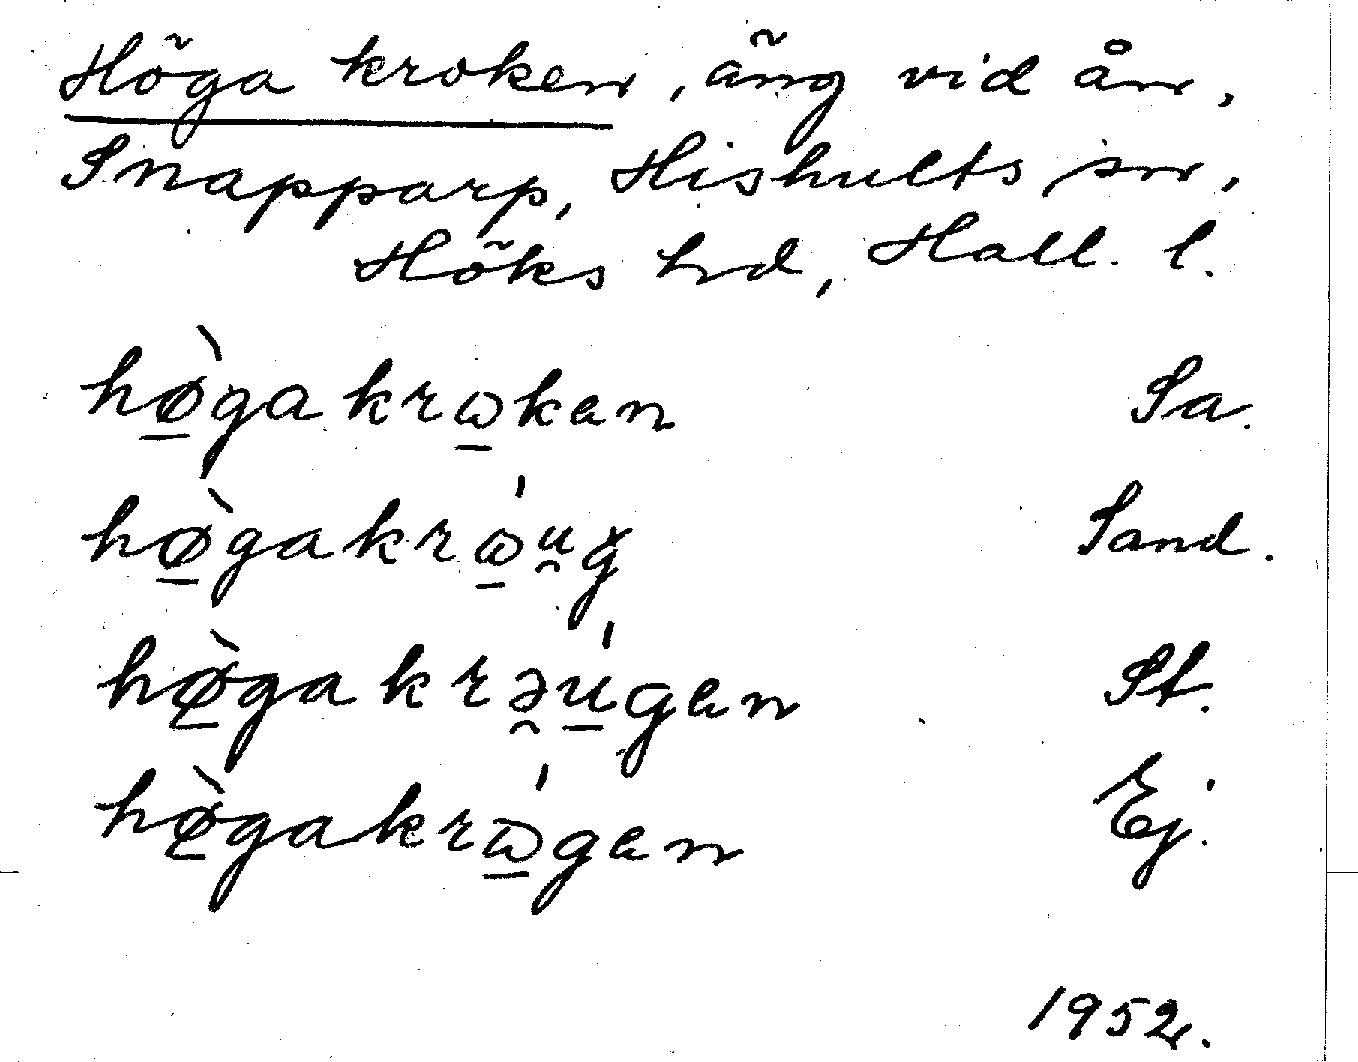 Höga kroken, äng vid ån,
Snapparp, Hishults sn,
Höks hd, Hall. l.
hø̠̀gakrɷ̠kan Sa.
hø̠̀gakrɷ̠́u̯ǥ Sand.
hø̠̀gakrə̯ú̠gan St.
hø̠̀gakrɷ̠́gan Ej.
1952.